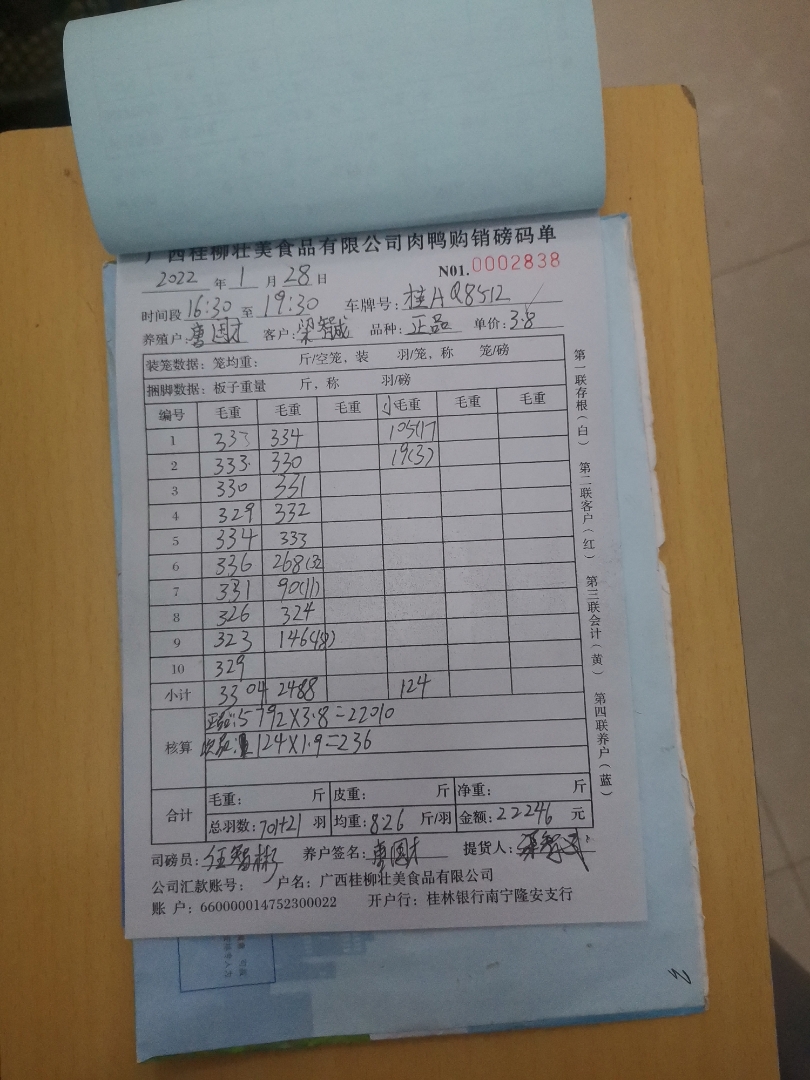 广西桂柳壮美食品有限公司肉鸭购销磅码单
2022 年 1 月 28 日 N01. 0002838
时间段 16:30 至 19:30 车牌号: 桂A Q8512
养殖户: 国才 客户: 梁智诚 品种: 正品 单价: 3.8
装笼数据: 笼均重: 斤/空笼, 装 羽/笼, 称 笼/磅
捆脚数据: 板子重量 斤, 称 羽/磅
编号 毛重 毛重 毛重 小毛重 毛重 毛重
1 333 334 105(17
2 333 330 19(3)
3 330 331
4 329 332
5 334 333
6 336 268(32
7 331 90(11)
8 326 324
9 323 146(18)
10 329
小计 3304 2488 124
核算
正品: 5792×3.8=22010
次品: 124×1.9=236
合计
毛重: 斤 皮重: 斤 净重: 斤
总羽数: 701+21 羽 均重: 8.26 斤/羽 金额: 22246 元
司磅员: 任智彬 养户签名: 国才 提货人:
公司汇款账号: 户名: 广西桂柳壮美食品有限公司
账 户: 660000014752300022 开户行: 桂林银行南宁隆安支行
第一联存根(白) 第二联客户(红) 第三联会计(黄) 第四联养户(蓝)